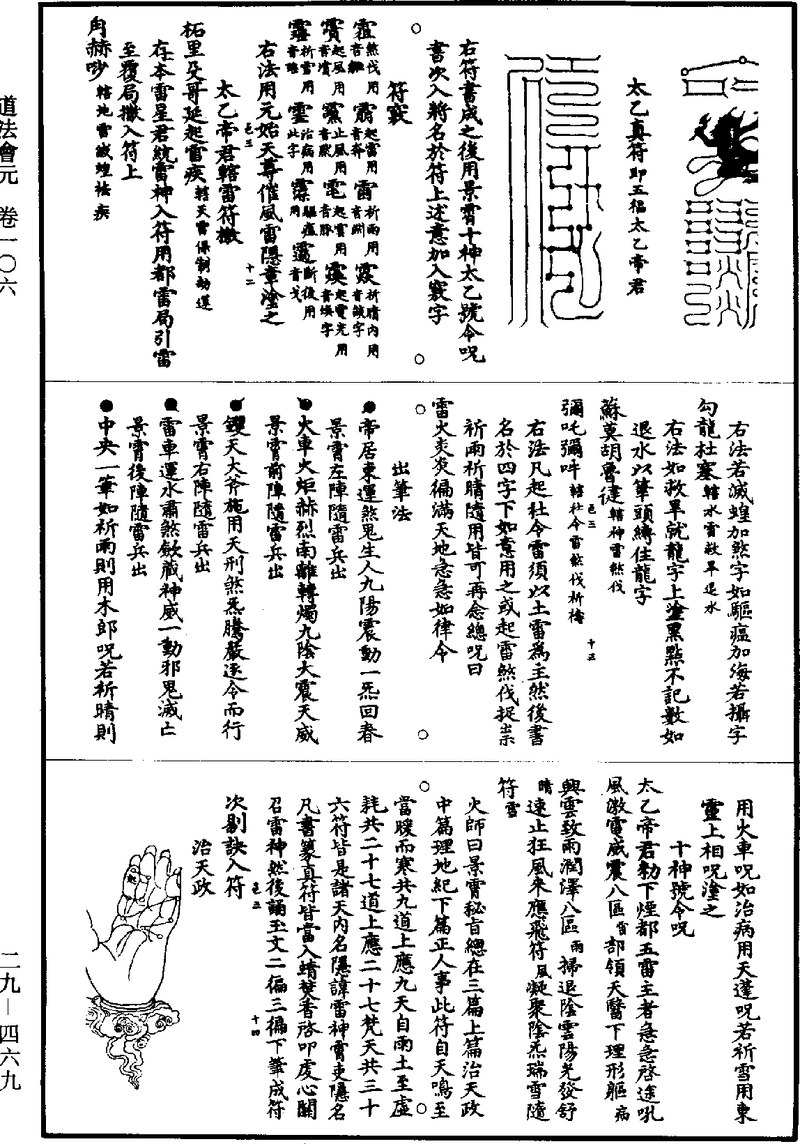 太乙真符即五福太乙帝君
右符書成之後用景霄十神太乙號令呪
書次入將名於符上述意加入竅字
符竅
右法用元始天尊催風雷隱章塗之
太乙帝君轄雷符檄
柘里㕛哥延起雷疾轄天雷保制劫運
存本雷星君統雷神入符用都雷局引雷
至覆局檄入符上
角赫吵轄地雷滅蝗祛疾
右法若滅蝗加煞字如驅瘟加海若攝字
勾龍杜塞轄水雷救旱退水
右法如救旱就龍字上塗黑點不記數如
退水以筆頭縛住龍字
蘇莫胡魯健轄神雷煞伐
彌吒彌吽轄社令雷煞伐祈禱
右法凡起社令雷須以土雷為主然後書
名於四字下如意用之或起雷煞伐捉祟
祈雨祈晴隨用皆可再念總呪曰
雷火炎炎徧滿天地急急如律令
出筆法
帝居東運煞鬼生人九陽震動一炁回春
景霄左陣隨雷兵出
火車火炬赫烈南離轉燭九陰大震天威
景霄前陣隨雷兵出
鑊天大斧施用天刑煞炁騰嚴逐令而行
景霄右陣隨雷兵出
雷車運水肅煞斂藏神威一動邪鬼滅亡
景霄後陣隨雷兵出
中央一筆如祈雨則用木郎呪若祈晴則
用火車呪如治病用天蓬呪若祈雪用東
靈上相呪塗之
十神號令呪
太乙帝君勑下煙都五雷主者急急啓途吼
風激電威震八區雷部領天醫下理形軀病
興雲致雨潤澤八區雨掃退陰雲陽光發舒
晴速止狂風來應飛符風凝聚陰炁瑞雪隨
符雪
火師曰景霄秘旨總在三篇上篇治天政
中篇理地紀下篇正人事此符自天鳴至
當暖而寒共九道上應九天自雨土至虛
耗共二十七道上應二十七梵天共三十
六符皆是諸天内名隱諱雷神霄吏隱名
凡書篆真符皆當入靖焚香啓叩虔心關
召雷神然後誦玉文二徧三徧下筆成符
次剔訣入符
治天政
道法會元 卷一〇六
二九—四六九